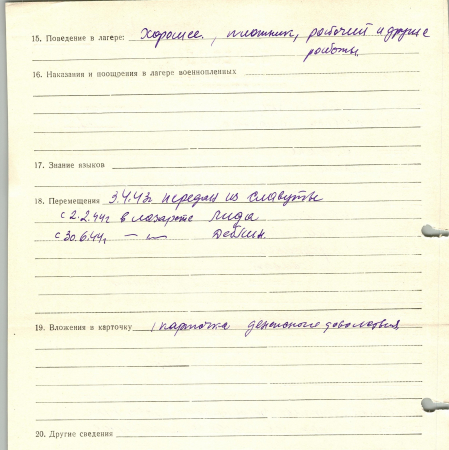 15. Поведение в лагере: Хорошее, плотник, рабочий и другие
работы.
16. Наказания и поощрения в лагере военнопленных
17. Знание языков
18. Перемещения 3.4.43г передан из Славуты
с 2.2.44г в лазарете Лида
с 30.6.44г — „ —
19. Вложения в карточку 1 карточка денежного довольствия
20. Другие сведения